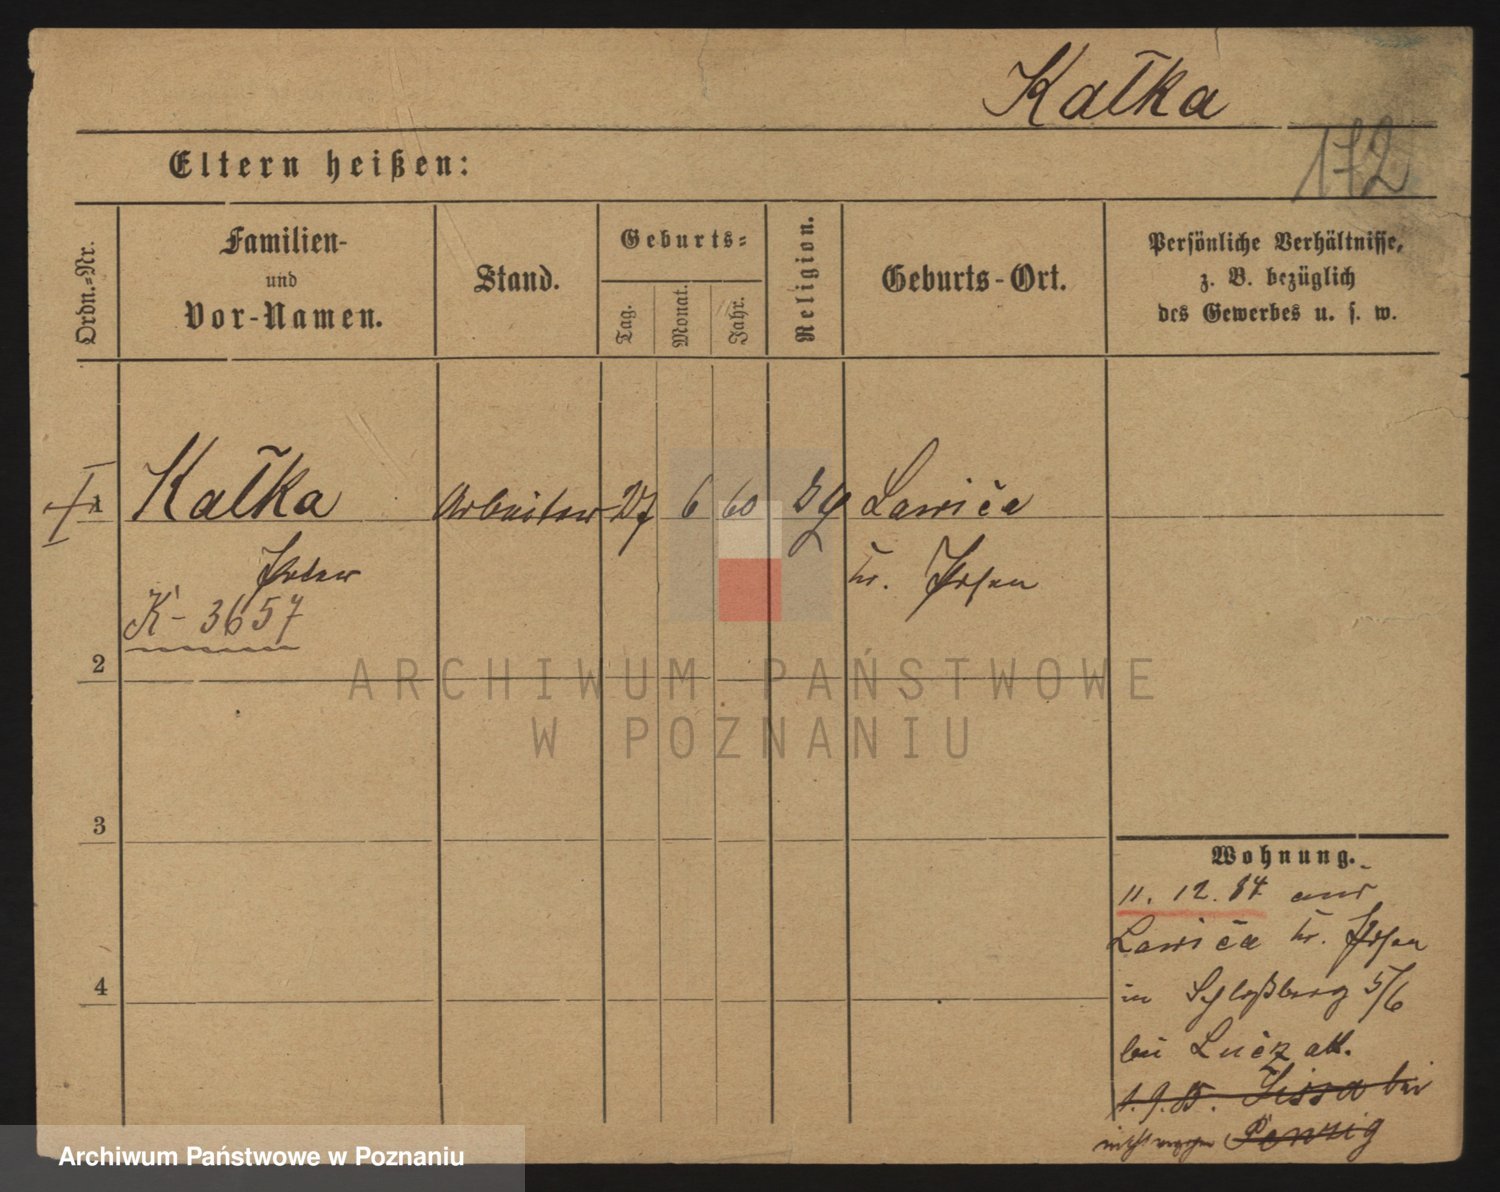 Kałka
172
Eltern heißen:
Ordn.-Nr.
Familien-
und
Vor-Namen.
Stand.
Geburts-
Tag.
Monat.
Jahr.
Religion.
Geburts-Ort.
Persönliche Verhältnisse,
z. B. bezüglich
des Gewerbes u. s. w.
1 Kałka Arbeiter 27 6 60 Ławica
Peter kr. Posen
K-3657
2
ARCHIWUM PAŃSTWOWE
W POZNANIU
3
4
Wohnung.
11. 12. 84 aus
Ławica kr. Posen
in Schloßberg 5/6
bei Łuczak.
1. 9. 85. Lissa bei
Archiwum Państwowe w Poznaniu